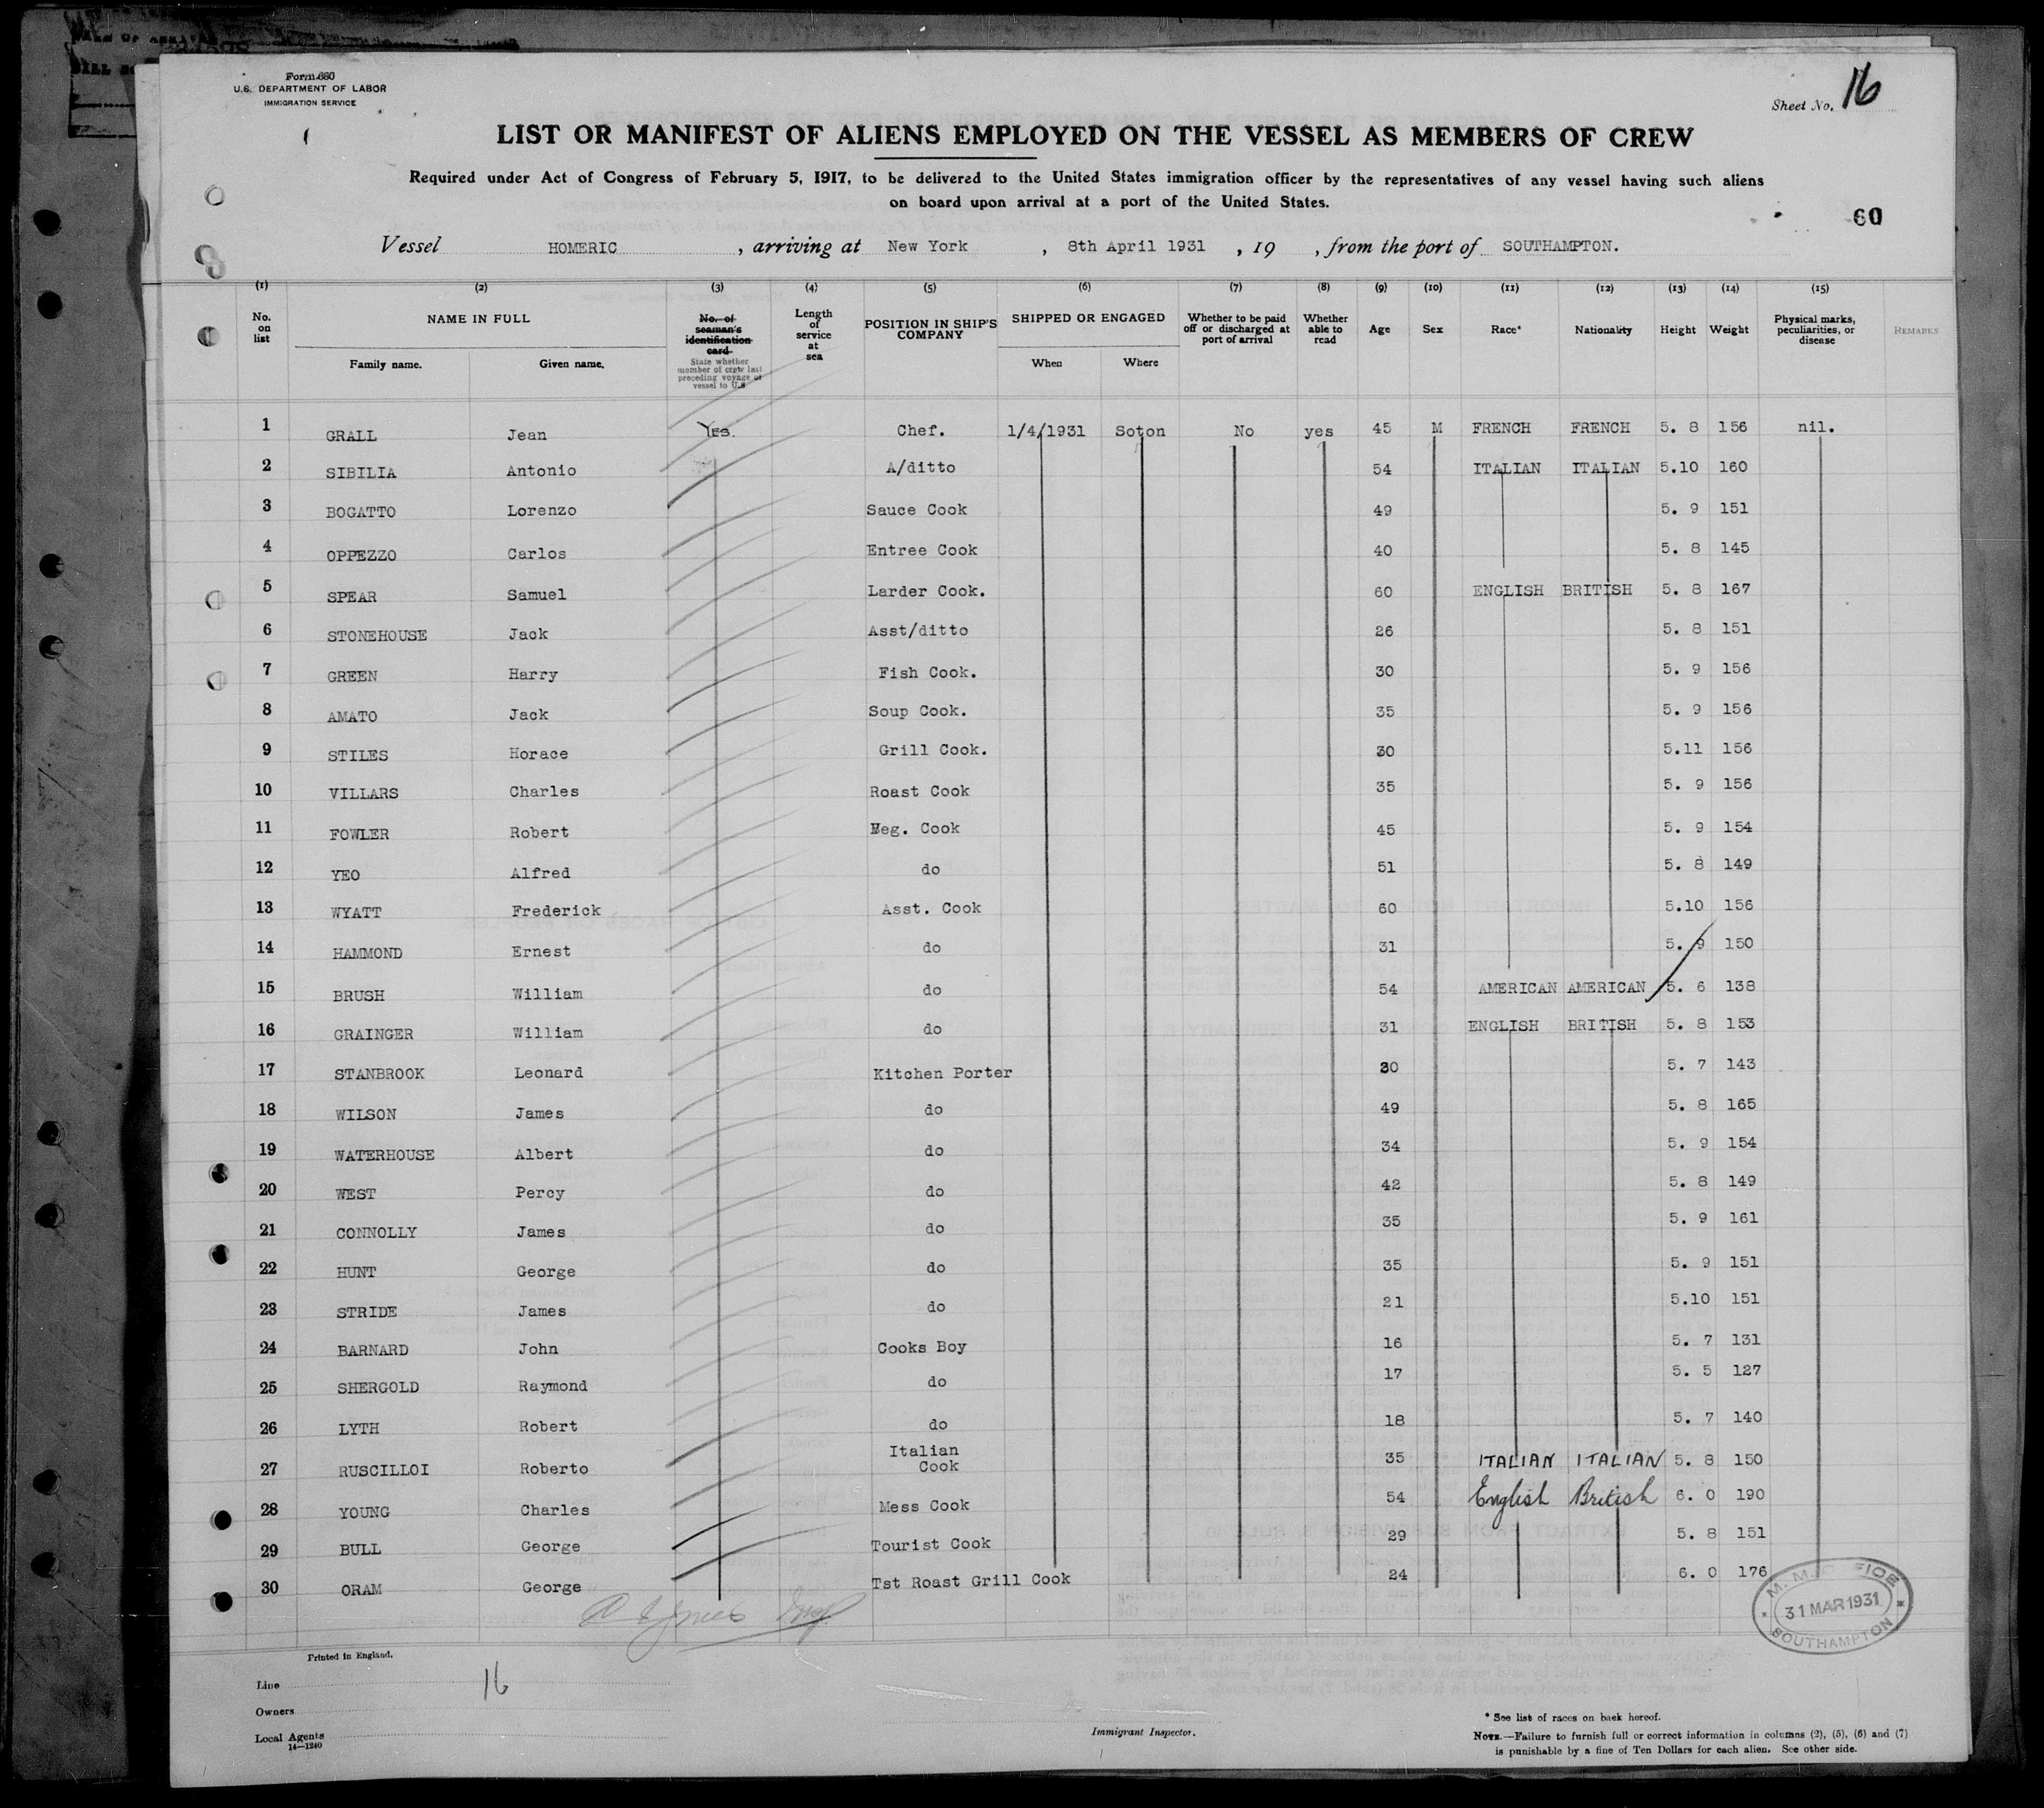 Form 680
U.S. DEPARTMENT OF LABOR
IMMIGRATION SERVICE
Sheet No. 16
LIST OR MANIFEST OF ALIENS EMPLOYED ON THE VESSEL AS MEMBERS OF CREW
Required under Act of Congress of February 5, 1917, to be delivered to the United States immigration officer by the representatives of any vessel having such aliens
on board upon arrival at a port of the United States.
60
Vessel HOMERIC, arriving at New York, 8th April 1931, 19 , from the port of SOUTHAMPTON.
(1) (2) (3) (4) (5) (6) (7) (8) (9) (10) (11) (12) (13) (14) (15)
No. on list
NAME IN FULL
Family name. Given name.
No. of seaman's identification card
State whether member of crew last preceding voyage of vessel to U.S
Length of service at sea
POSITION IN SHIP'S COMPANY
SHIPPED OR ENGAGED
When Where
Whether to be paid off or discharged at port of arrival
Whether able to read
Age
Sex
Race*
Nationality
Height
Weight
Physical marks, peculiarities, or disease
REMARKS
1 GRALL Jean Yes. Chef. 1/4/1931 Soton No yes 45 M FRENCH FRENCH 5. 8 156 nil.
2 SIBILIA Antonio A/ditto 54 ITALIAN ITALIAN 5.10 160
3 BOGATTO Lorenzo Sauce Cook 49 5. 9 151
4 OPPEZZO Carlos Entree Cook 40 5. 8 145
5 SPEAR Samuel Larder Cook. 60 ENGLISH BRITISH 5. 8 167
6 STONEHOUSE Jack Asst/ditto 26 5. 8 151
7 GREEN Harry Fish Cook. 30 5. 9 156
8 AMATO Jack Soup Cook. 35 5. 9 156
9 STILES Horace Grill Cook. 30 5.11 156
10 VILLARS Charles Roast Cook 35 5. 9 156
11 FOWLER Robert Veg. Cook 45 5. 9 154
12 YEO Alfred do 51 5. 8 149
13 WYATT Frederick Asst. Cook 60 5.10 156
14 HAMMOND Ernest do 31 5. 9 150
15 BRUSH William do 54 AMERICAN AMERICAN 5. 6 138
16 GRAINGER William do 31 ENGLISH BRITISH 5. 8 153
17 STANBROOK Leonard Kitchen Porter 30 5. 7 143
18 WILSON James do 49 5. 8 165
19 WATERHOUSE Albert do 34 5. 9 154
20 WEST Percy do 42 5. 8 149
21 CONNOLLY James do 35 5. 9 161
22 HUNT George do 35 5. 9 151
23 STRIDE James do 21 5.10 151
24 BARNARD John Cooks Boy 16 5. 7 131
25 SHERGOLD Raymond do 17 5. 5 127
26 LYTH Robert do 18 5. 7 140
27 RUSCILLOI Roberto Italian Cook 35 ITALIAN ITALIAN 5. 8 150
28 YOUNG Charles Mess Cook 54 English British 6. 0 190
29 BULL George Tourist Cook 29 5. 8 151
30 ORAM George Tst Roast Grill Cook 24 6. 0 176
M. M. OFFICE
31 MAR 1931
SOUTHAMPTON
Printed in England.
Line
16
Owners
Local Agents
14—1240
Immigrant Inspector.
* See list of races on back hereof.
NOTE.—Failure to furnish full or correct information in columns (2), (5), (6) and (7)
is punishable by a fine of Ten Dollars for each alien. See other side.